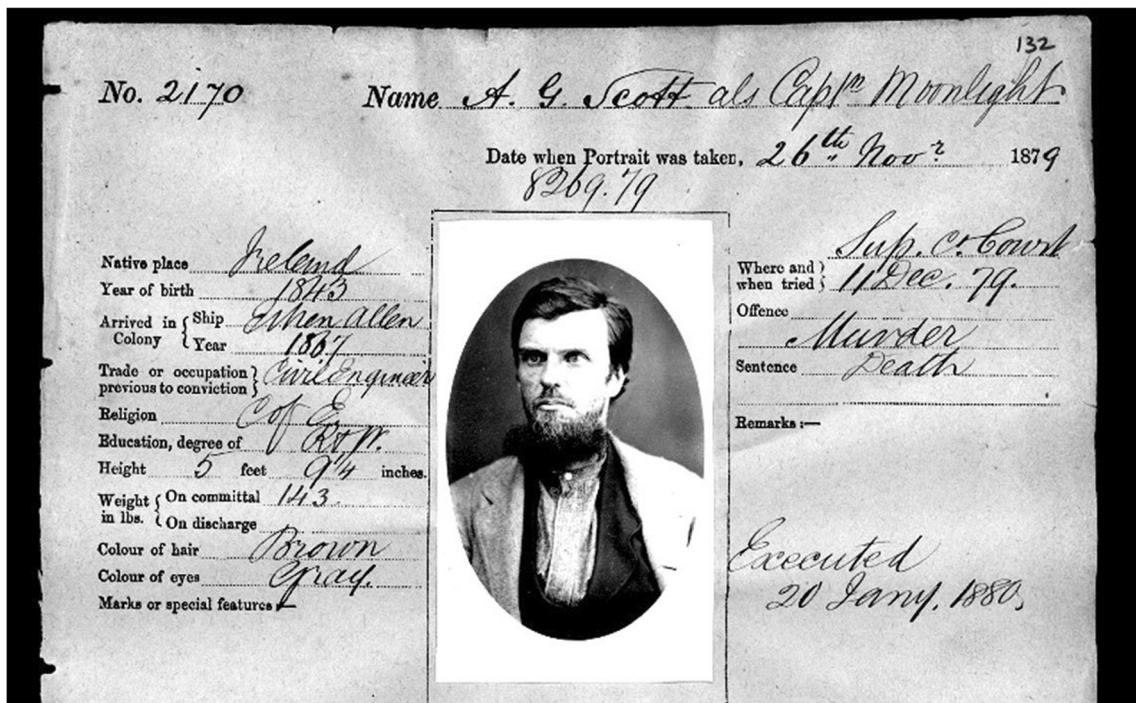 132
No. 2170 Name A. G. Scott als Captn Moonlight
Date when Portrait was taken, 26th Novr 1879
8269.79
Native place Ireland
Year of birth 1843
Arrived in Colony { Ship Ethen Allen
Year 1867
Trade or occupation previous to conviction } Civil Engineer
Religion C of E.
Education, degree of R & W.
Height 5 feet 9 1/4 inches.
Weight in lbs. { On committal 143
On discharge
Colour of hair Brown
Colour of eyes Gray.
Marks or special features :—
Sup. Ct Court
Where and when tried } 11 Dec. 79.
Offence
Murder
Sentence Death
Remarks :—
Executed
20 Jany. 1880,